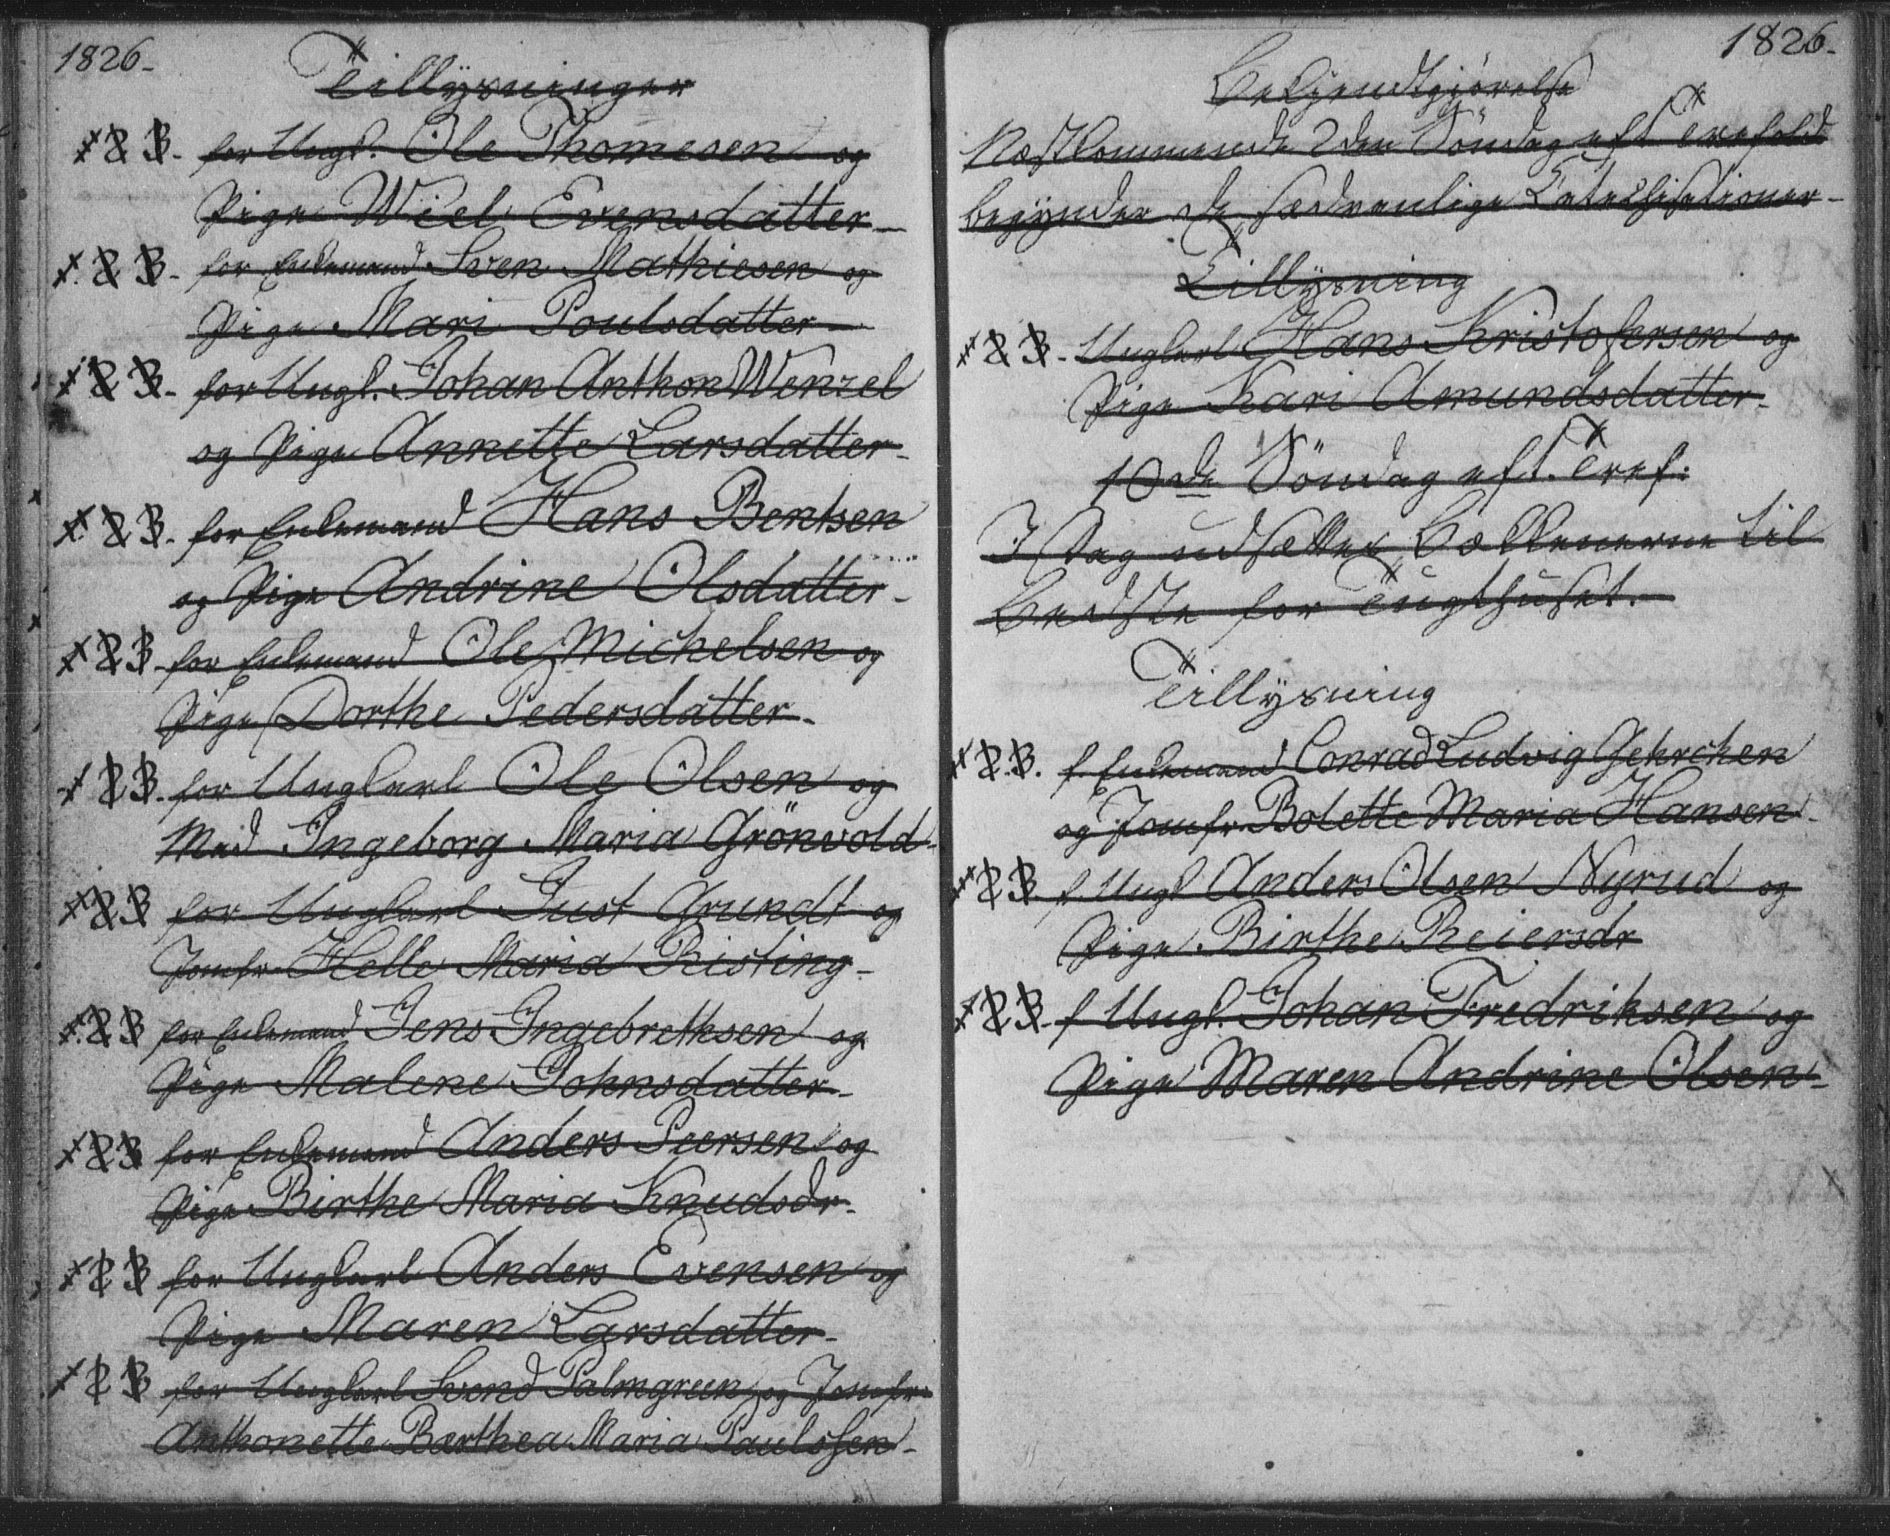 1826.
Tillysninger
for Ungk. Ole Thomesen og
Pige Wiel Evensdatter
for Enkemand Sven Mathiesen og
Pige Mari Poulsdatter
for Ungk. Johan Anthon Wenzel
og Pige Annette Larsdatter
for Enkemand Hans Bentsen
og Pige Andrine Olsdatter
for Enkemand Ole Michelsen og
Pige Dorthe Pedersdatter
for Ungkarl Ole Olsen og
Mad Ingeborg Maria Grönvold
for Ungkarl Just Grundt og
Jomfr Helle Maria Risting
for Enkemand Jens Ingebrethsen og
Pige Malene Johnsdatter
for Enkemand Anders Peersen og
Pige Birthe Maria Knudsdr.
for Ungkarl Anders Evensen og
Pige Maren Larsdatter
for Ungkarl Svend Palmgreen og Jomfr.
Anthonette Barthea Maria Paulssen
1826.
Bekjendtgjörelse
Næstkommende 2den Söndag eft Trefold
begynder de sædvanlige Catechisationer
Tillysning
Ungkarl Hans Kristofersen og
Pige Kari Amundsdatter
10de Söndag eft. Tref:
I Dag udsættes Bækkenerne til
Bedste for Tugthuset.
Tillysning
f Enkemand Conrad Ludvig Gehrchen
og Jomfr Bolette Maria Hansen
f Ungk Anders Olsen Nyrud og
Pige Birthe Reiersdr
f Ungk. Johan Fredriksen og
Pige Maren Andrine Olsen